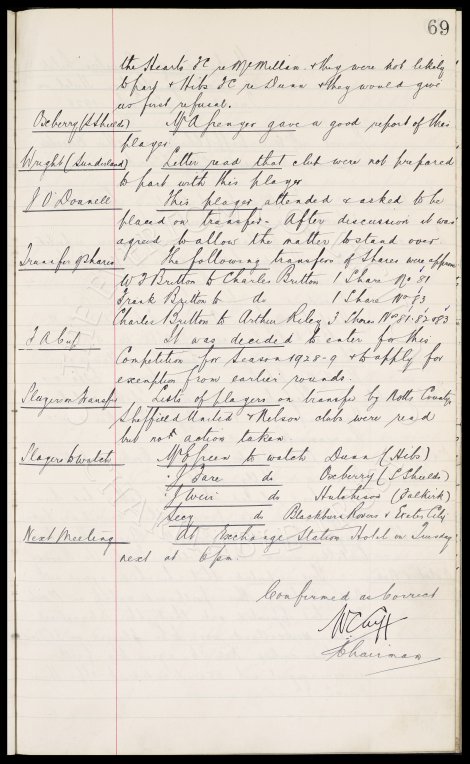 69
the Hearts FC re McMillan & they were not likely
to part & Hibs FC re Dunn & they would give
us first refusal.
Oxberry (S Shields) Mr A Spenger gave a good report of this
player
Wright (Sunderland) Letter read that club were not prepared
to part with this player
J O'Donnell This player attended & asked to be
placed on transfer. After discussion it was
agreed to allow the matter to stand over.
Transfer of Shares The following transfers of Shares was approved
W J Britton to Charles Britton 1 Share No 81
Frank Britton to do 1 Share No 83
Charles Britton to Arthur Riley 3 Shares Nos 81. 82 & 83
F A Cup It was decided to enter for this
Competition for Season 1928-9 & to apply for
exemption from earlier rounds.
Players on Transfer Lists of players on transfer by Notts County
Sheffield United & Nelson clubs were read
but no action taken
Players to Watch Mr E Green to watch Dunn (Hibs)
" J Bare do Oxberry (S Shields)
" J Weir do Hutchison (Falkirk)
Secy do Blackburn Rovers & Exeter City
Next Meeting At Exchange Station Hotel on Tuesday
next at 6pm.
Confirmed as Correct
W C Cuff
Chairman